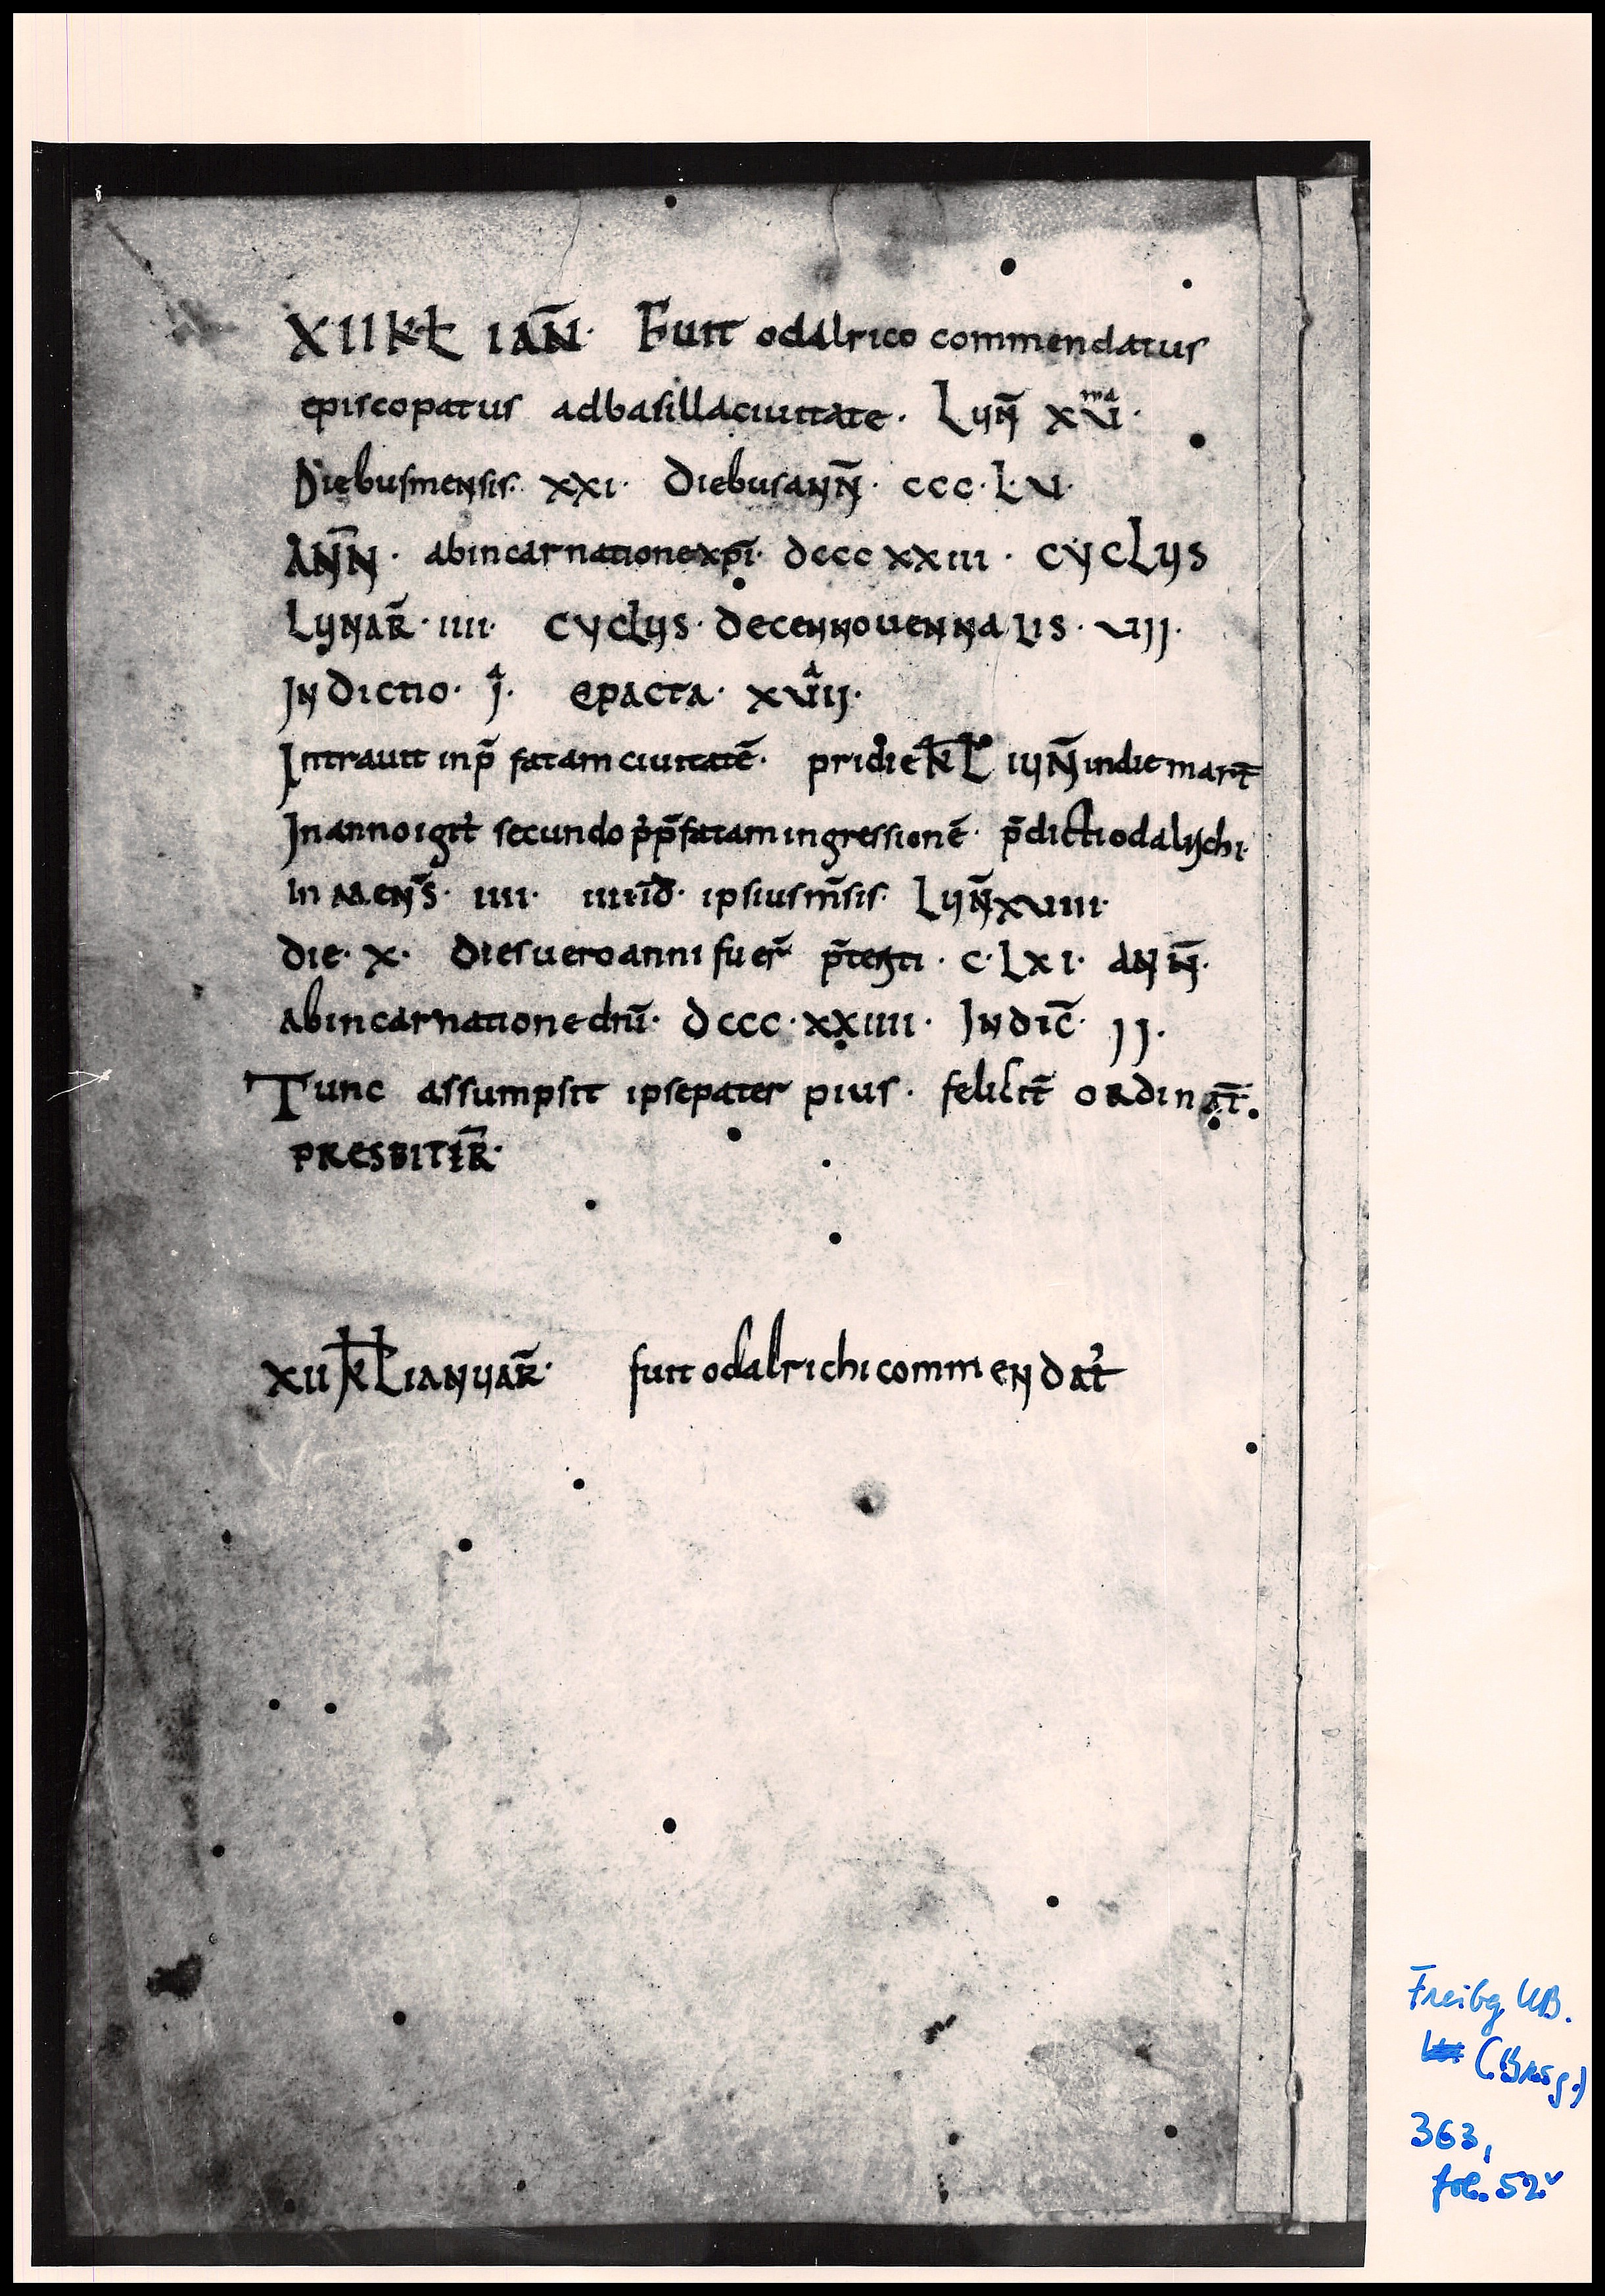 XII kł IAN̄· Fuit odalrico commendatus
episcopatus adbasillaciuitate· Lun̄ xv̄ ma·
Diebusmensis· xxi· diebusann̄· ccc·L·v·
ANN̄· abincarnationexp̄i· dccc xxiii· cyclus
Lunar̄·iiii· cyclus· decennouennalis·vii·
Indictio· i a· epacta· xvii a·
Intrauit inp̄ fatam ciuitatē· pridie k̄L iun̄ indie mart̄
Inanno igit̄ secundo p̄p̄fatam ingressionē· p̄dicti odalrichi
in mens̄· iiii· iiii id̄· ipsius m̄sis· Lun̄ xviiii·
die· x· dies uero anni fuer̄ p̄tenti· c·Lxi· ann̄·
abincarnatione dn̄i· dccc·xxiiii· Indic̄· ii·
Tunc assumpsit ipse pater pius· felicit̄ ordinat̄·
PRESBITER̄·
xii k̄Lianuar̄· fuit odalrichi commendat̄
Freibg UB.
(Brsg.)
363,
fol. 52v